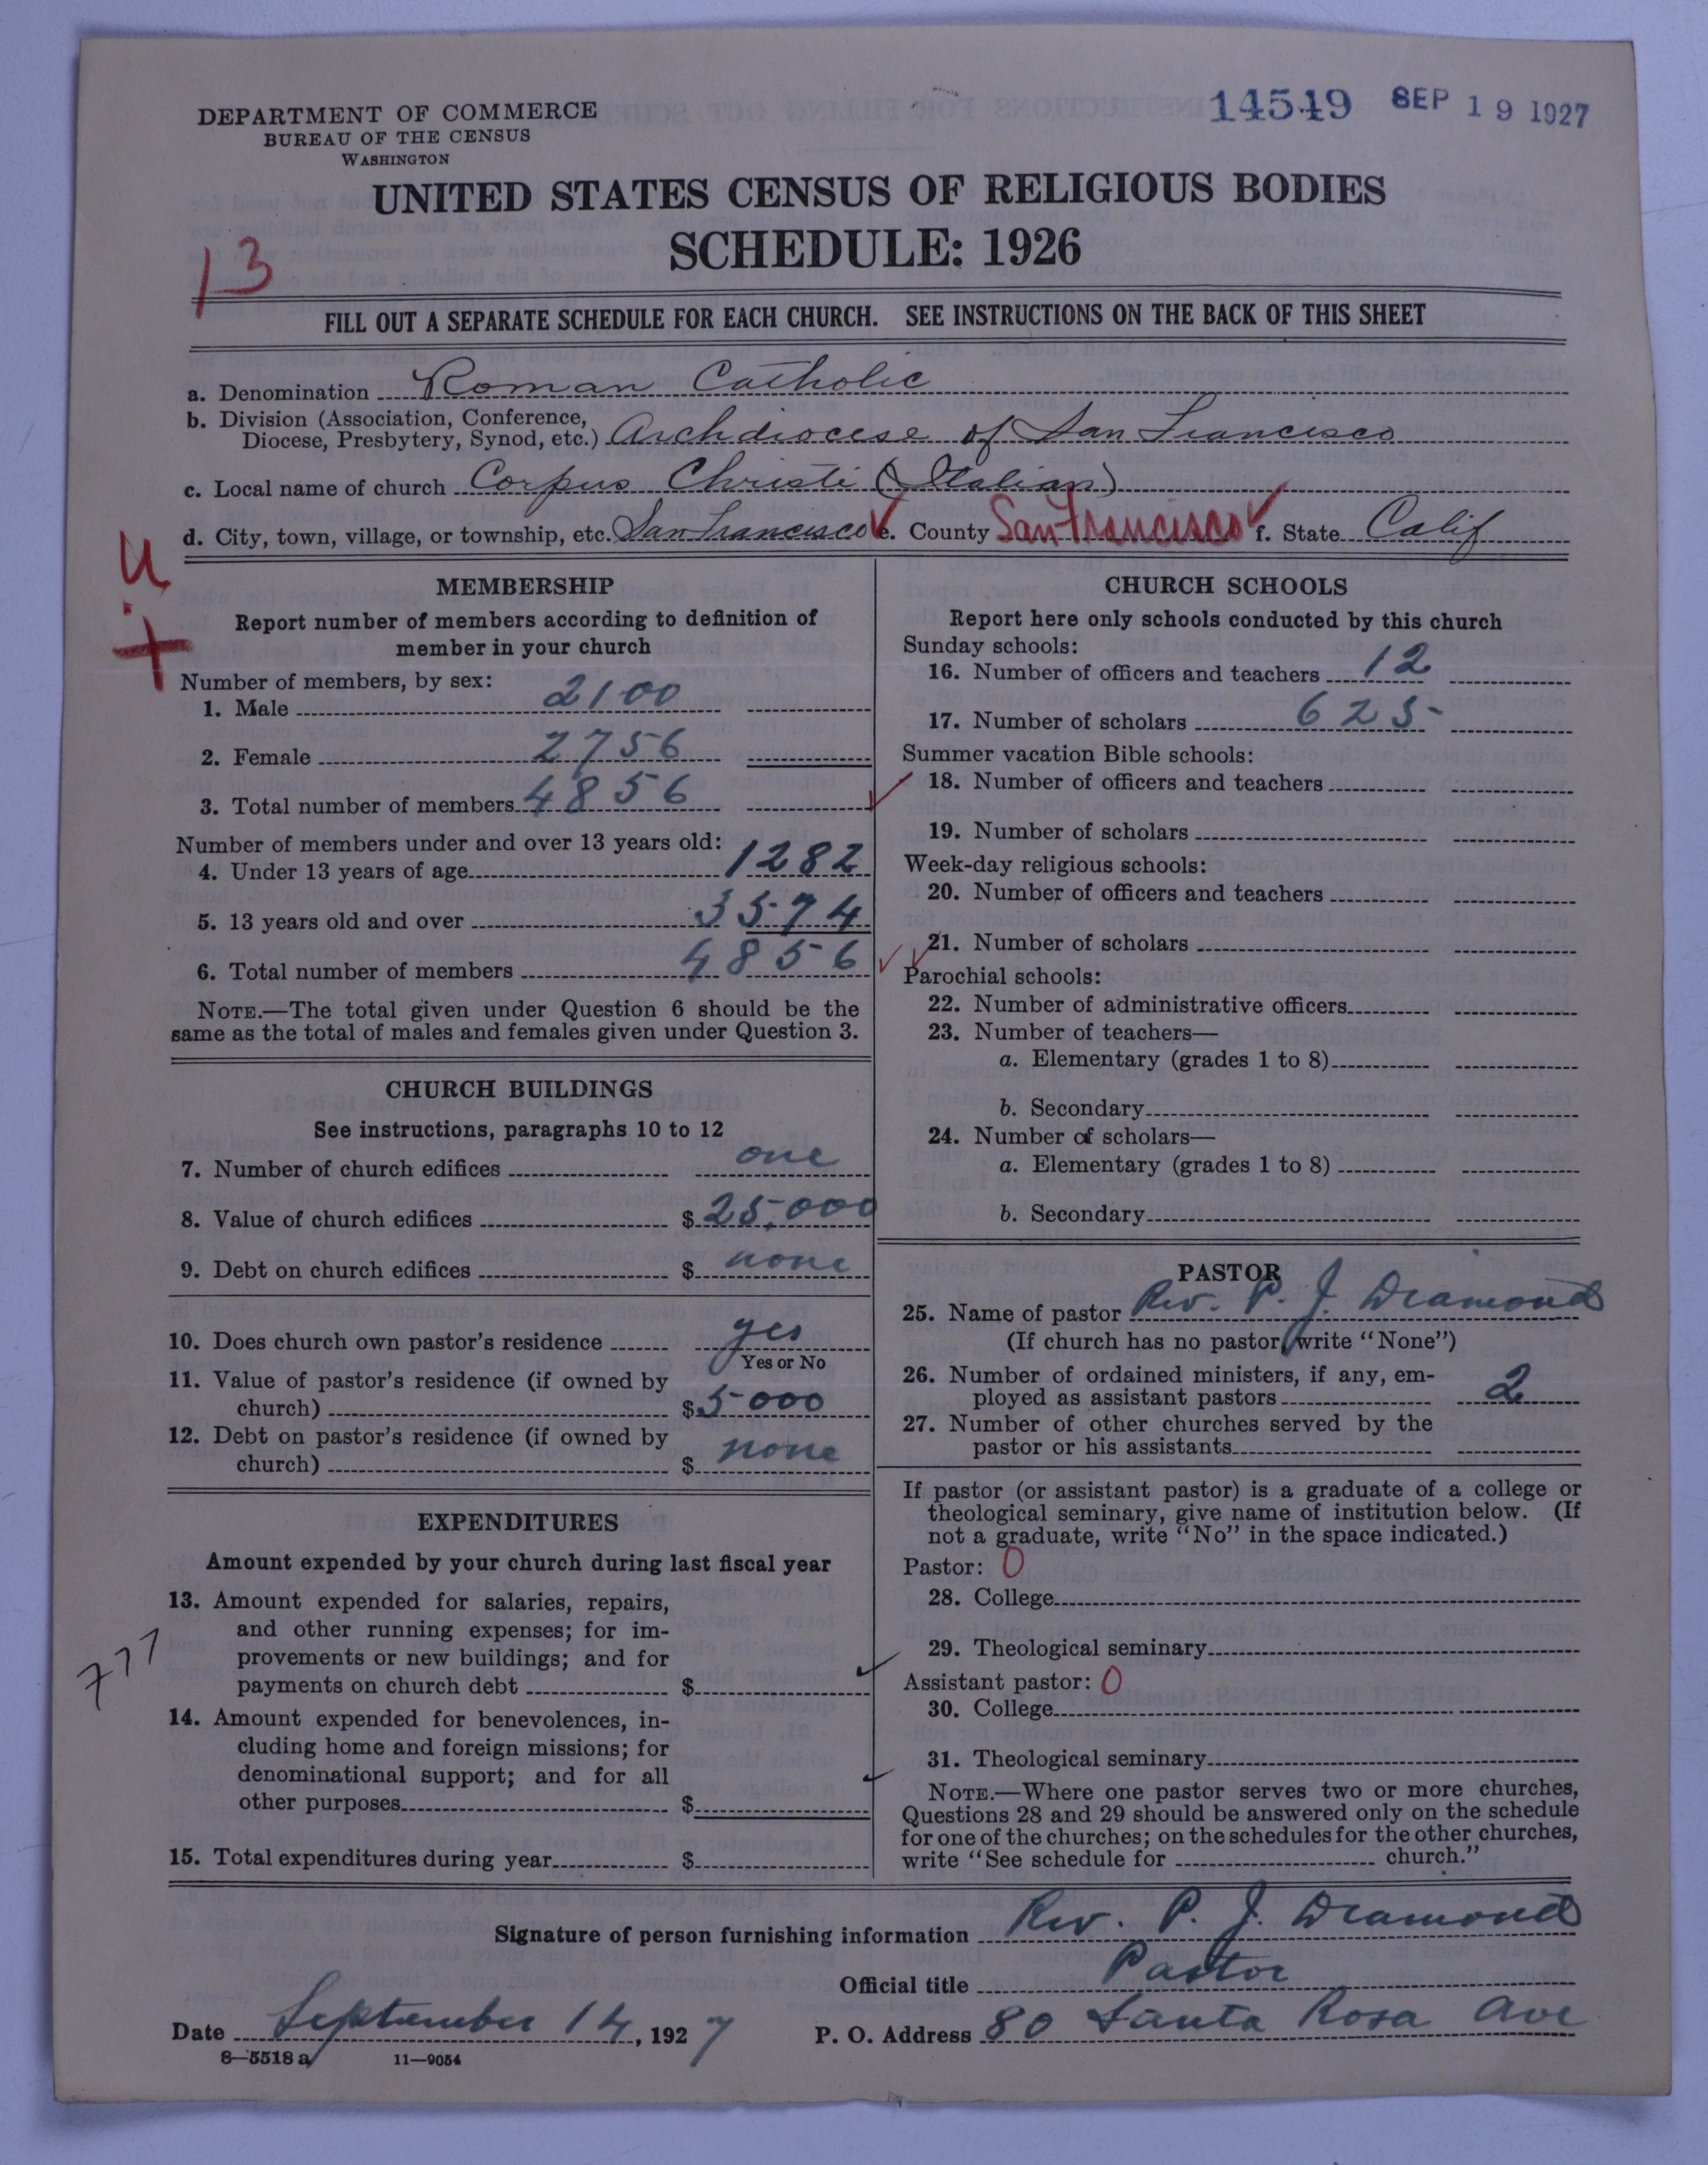 DEPARTMENT OF COMMERCE
BUREAU OF THE CENSUS
WASHINGTON
14549 SEP 19 1927
UNITED STATES CENSUS OF RELIGIOUS BODIES
SCHEDULE: 1926
13
FILL OUT A SEPARATE SCHEDULE FOR EACH CHURCH. SEE INSTRUCTIONS ON THE BACK OF THIS SHEET
a. Denomination Roman Catholic
b. Division (Association, Conference,
Diocese, Presbytery, Synod, etc.) Archdiocese of San Francisco
c. Local name of church Corpus Christi (Italian)
d. City, town, village, or township, etc. San Francisco e. County San Francisco f. State Calif
MEMBERSHIP
Report number of members according to definition of
member in your church
Number of members, by sex:
1. Male 2100
2. Female 2756
3. Total number of members 4856
Number of members under and over 13 years old:
4. Under 13 years of age 1282
5. 13 years old and over 3574
6. Total number of members 4856
NOTE.—The total given under Question 6 should be the
same as the total of males and females given under Question 3.
CHURCH BUILDINGS
See instructions, paragraphs 10 to 12
7. Number of church edifices one
8. Value of church edifices $ 25,000
9. Debt on church edifices $ none
10. Does church own pastor's residence yes
Yes or No
11. Value of pastor's residence (if owned by
church) $ 5000
12. Debt on pastor's residence (if owned by
church) $ none
EXPENDITURES
Amount expended by your church during last fiscal year
13. Amount expended for salaries, repairs,
and other running expenses; for im-
provements or new buildings; and for
payments on church debt $
777
14. Amount expended for benevolences, in-
cluding home and foreign missions; for
denominational support; and for all
other purposes $
15. Total expenditures during year $
CHURCH SCHOOLS
Report here only schools conducted by this church
Sunday schools:
16. Number of officers and teachers 12
17. Number of scholars 625
Summer vacation Bible schools:
18. Number of officers and teachers
19. Number of scholars
Week-day religious schools:
20. Number of officers and teachers
21. Number of scholars
Parochial schools:
22. Number of administrative officers
23. Number of teachers—
a. Elementary (grades 1 to 8)
b. Secondary
24. Number of scholars—
a. Elementary (grades 1 to 8)
b. Secondary
PASTOR
25. Name of pastor Rev. P. J. Diamond
(If church has no pastor, write "None")
26. Number of ordained ministers, if any, em-
ployed as assistant pastors 2
27. Number of other churches served by the
pastor or his assistants
If pastor (or assistant pastor) is a graduate of a college or
theological seminary, give name of institution below. (If
not a graduate, write "No" in the space indicated.)
Pastor: 0
28. College
29. Theological seminary
Assistant pastor: 0
30. College
31. Theological seminary
NOTE.—Where one pastor serves two or more churches,
Questions 28 and 29 should be answered only on the schedule
for one of the churches; on the schedules for the other churches,
write "See schedule for church."
Signature of person furnishing information Rev. P. J. Diamond
Official title Pastor
Date September 14, 1927 P. O. Address 80 Santa Rosa Ave
8—5518 a 11—9054